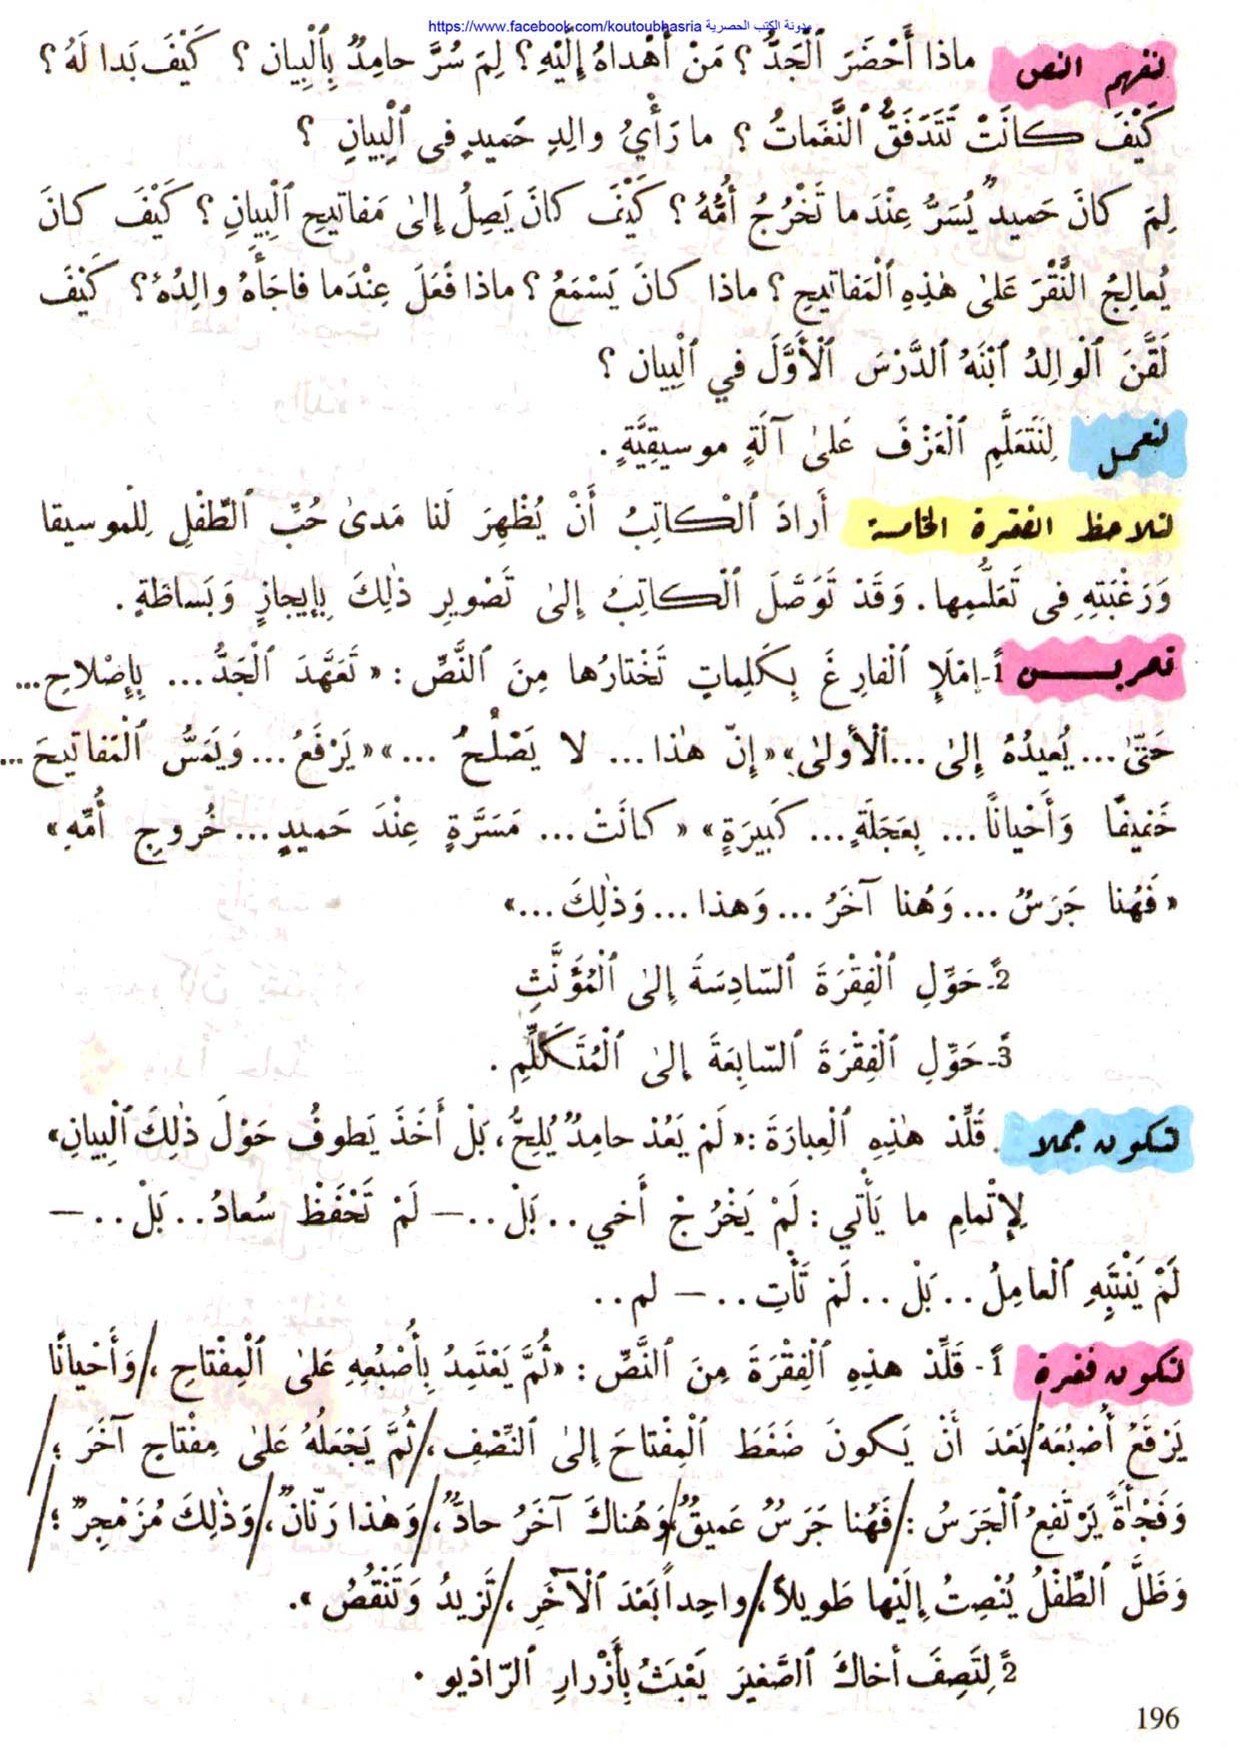 مدونة الكتب الحصرية https://www.facebook.com/koutoubhasria
لنفهم النص ماذا أَحْضَرَ ٱلْجَدُّ ؟ مَنْ أَهْداهُ إِلَيْهِ ؟ لِمَ سُرَّ حامِدٌ بِٱلْبِيان ؟ كَيْفَ بَدا لَهُ ؟
كَيْفَ كانَتْ تَتَدَفَّقُ ٱلنَّغَماتُ ؟ ما رَأْيُ والِدِ حَميدٍ فى ٱلْبِيانِ ؟
لِمَ كانَ حَميدٌ يُسَرُّ عِنْدَما تَخْرُجُ أُمُّهُ ؟ كَيْفَ كانَ يَصِلُ إِلىٰ مَفاتيحِ ٱلْبِيانِ ؟ كَيْفَ كانَ
يُعالِجُ النَّقْرَ عَلىٰ هٰذِهِ ٱلْمَفاتيحِ ؟ ماذا كانَ يَسْمَعُ ؟ ماذا فَعَلَ عِنْدَما فاجَأَهُ والِدُهُ ؟ كَيْفَ
لَقَّنَ ٱلْوالِدُ ٱبْنَهُ ٱلدَّرْسَ ٱلْأَوَّلَ في ٱلْبِيان ؟
لنعمل لِنَتَعَلَّمِ ٱلْعَزْفَ عَلىٰ آلَةٍ موسيقِيَّةٍ .
لنلاحظ الفقرة الخامسة أَرادَ ٱلْكاتِبُ أَنْ يُظْهِرَ لَنا مَدىٰ حُبِّ ٱلطِّفْلِ لِلْموسيقا
وَرَغْبَتِهِ فِى تَعَلُّمِها . وَقَدْ تَوَصَّلَ ٱلْكاتِبُ إِلىٰ تَصْويرِ ذٰلِكَ بِإيجازٍ وَبَساطَةٍ .
تمريـن 1ً- إِمْلَإِ ٱلْفارِغَ بِكَلِماتٍ تَخْتارُها مِنَ ٱلنَّصِّ : « تَعَهَّدَ ٱلْجَدُّ ... بِإِصْلاحِ ...
حَتّىٰ ... يُعيدُهُ إِلىٰ ... ٱلْأولىٰ » « إِنّ هٰذا ... لا يَصْلُحُ ... » « يَرْفَعُ ... وَيَمَسُّ ٱلْمَفاتيحَ ...
خَفيفًا وَأَحْيانًا ... بِعَجَلَةٍ ... كَبيرَةٍ » « كانَتْ ... مَسَرَّةٍ عِنْدَ حَميدٍ ... خُروجِ أُمِّهِ »
« فَهُنا جَرَسٌ ... وَهُنا آخَرُ ... وَهذا ... وَذٰلِكَ ... »
2ً- حَوِّلِ ٱلْفِقْرَةَ ٱلسّادِسَةَ إِلىٰ ٱلْمُؤَنَّثِ
3ً- حَوِّلِ ٱلْفِقْرَةَ ٱلسّابِعَةَ إِلىٰ ٱلْمُتَكَلِّمِ .
لنكون جملا . قَلِّدْ هٰذِهِ ٱلْعِبارَةَ : « لَمْ يَعُدْ حامِدٌ يُلِحُّ ، بَلْ أَخَذَ يَطوفُ حَوْلَ ذٰلِكَ ٱلْبِيانِ »
لِإِتْمامِ ما يَأْتي : لَمْ يَخْرُجْ أَخي .. بَلْ .. — لَمْ تَحْفَظْ سُعادُ .. بَلْ .. —
لَمْ يَنْتَبِهِ ٱلْعامِلُ .. بَلْ .. لَمْ تَأْتِ .. — لم ..
لنكون فقرة 1ً- قَلِّدْ هذِهِ ٱلْفِقْرَةَ مِنَ ٱلنَّصِّ : « ثُمَّ يَعْتَمِدُ بِأُصْبُعِهِ عَلىٰ ٱلْمِفْتاحِ ،/ وَأَحْيانًا
يَرْفَعُ أُصْبُعَهُ / بَعْدَ أَنْ يَكونَ ضَغَطَ ٱلْمِفْتاحَ إِلىٰ ٱلنِّصْفِ ،/ ثُمَّ يَجْعَلُهُ عَلىٰ مِفْتاحٍ آخَرَ ؛ /
وَفَجْأَةً يَرْتَفِعُ ٱلْجَرَسُ : / فَهُنا جَرَسٌ عَميقٌ ،/ وَهُناكَ آخَرُ حادٌّ ،/ وَهٰذا رَنّانٌ ،/ وَذٰلِكَ مُزَمْجِرٌ ؛ /
وَظَلَّ ٱلطِّفْلُ يُنْصِتُ إِلَيْها طَويلاً ،/ واحِداً بَعْدَ ٱلْآخَرِ ،/ تَزيدُ وَتَنْقُصُ » .
2ً لِتَصِفَ أخاكَ ٱلصَّغيرَ يَعْبَثُ بِأَزْرارِ ٱلرّاديو .
196